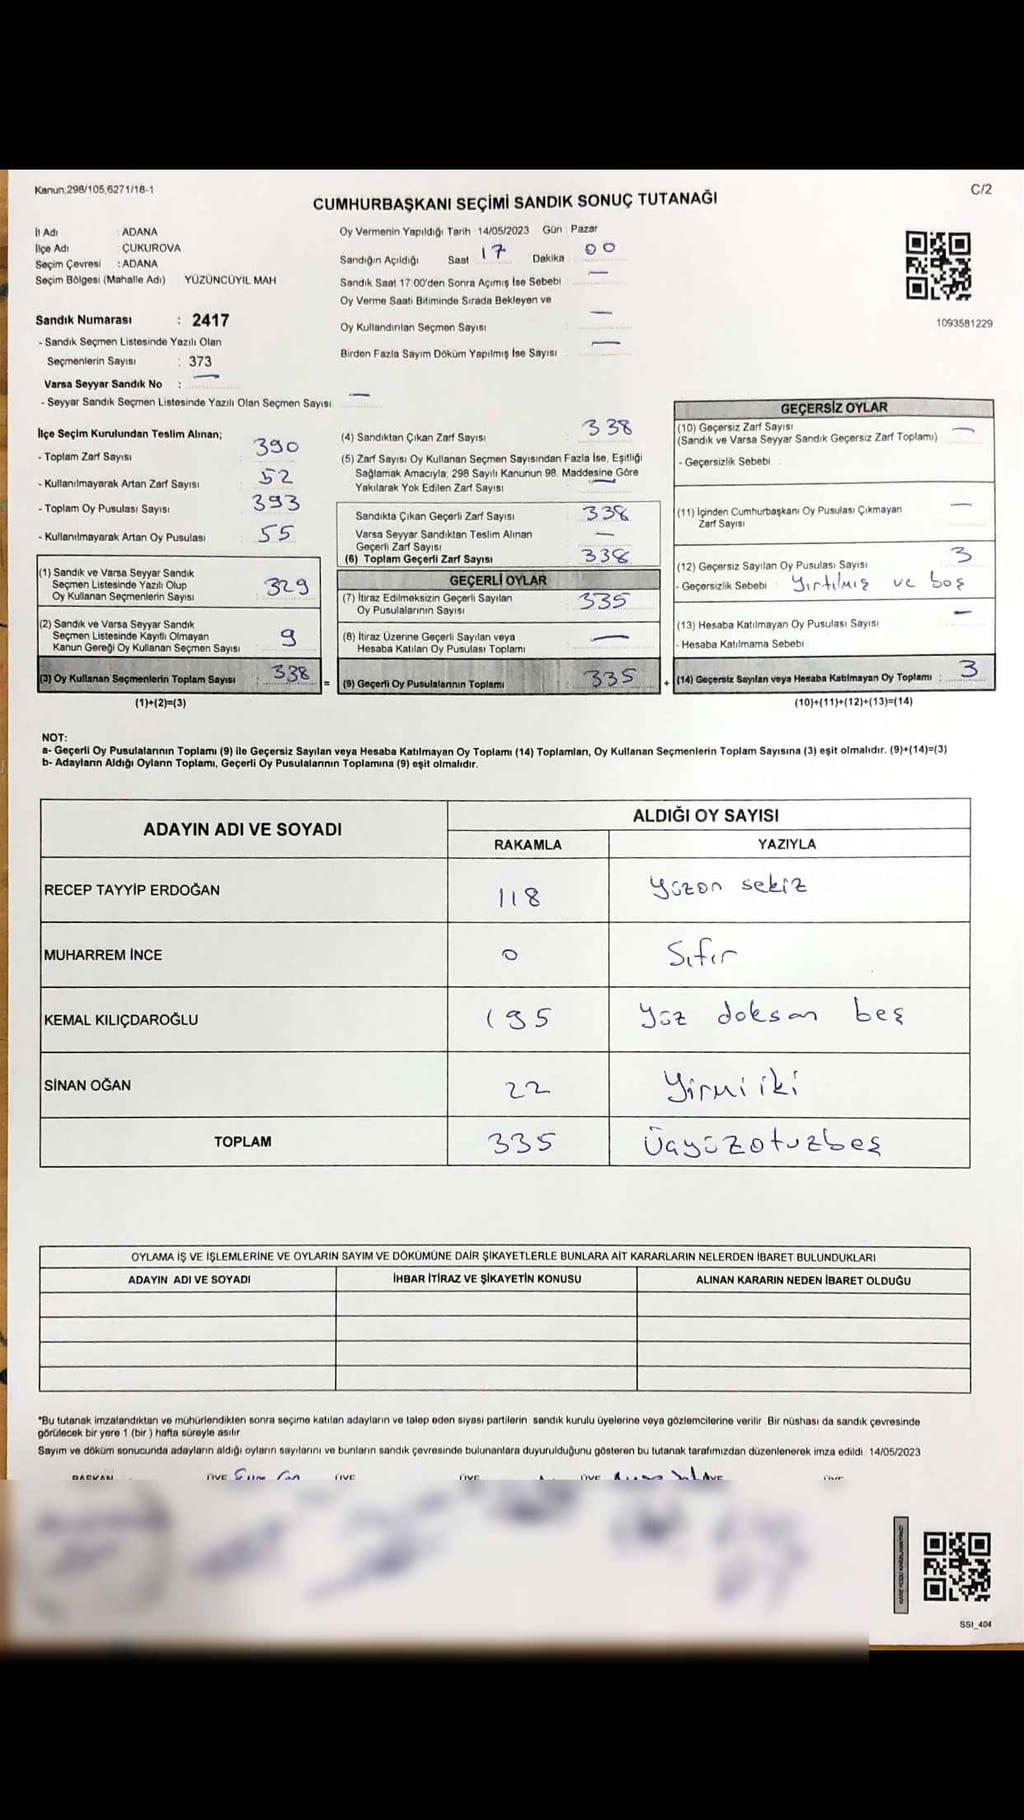 Kanun.298/105,6271/18-1
C/2
CUMHURBAŞKANI SEÇİMİ SANDIK SONUÇ TUTANAĞI
İl Adı : ADANA
İlçe Adı : ÇUKUROVA
Seçim Çevresi : ADANA
Seçim Bölgesi (Mahalle Adı) YÜZÜNCÜYIL MAH
Sandık Numarası : 2417
- Sandık Seçmen Listesinde Yazılı Olan
Seçmenlerin Sayısı : 373
Varsa Seyyar Sandık No : —
- Seyyar Sandık Seçmen Listesinde Yazılı Olan Seçmen Sayısı —
Oy Vermenin Yapıldığı Tarih : 14/05/2023 Gün : Pazar
Sandığın Açıldığı Saat 17 Dakika 00
Sandık Saat 17:00'den Sonra Açımış İse Sebebi : —
Oy Verme Saati Bitiminde Sırada Bekleyen ve
Oy Kullandırılan Seçmen Sayısı —
Birden Fazla Sayım Döküm Yapılmış İse Sayısı —
1093581229
İlçe Seçim Kurulundan Teslim Alınan;
- Toplam Zarf Sayısı 390
- Kullanılmayarak Artan Zarf Sayısı 52
- Toplam Oy Pusulası Sayısı 393
- Kullanılmayarak Artan Oy Pusulası 55
(1) Sandık ve Varsa Seyyar Sandık
Seçmen Listesinde Yazılı Olup
Oy Kullanan Seçmenlerin Sayısı 329
(2) Sandık ve Varsa Seyyar Sandık
Seçmen Listesinde Kayıtlı Olmayan
Kanun Gereği Oy Kullanan Seçmen Sayısı 9
(3) Oy Kullanan Seçmenlerin Toplam Sayısı : 338
(1)+(2)=(3)
(4) Sandıktan Çıkan Zarf Sayısı 338
(5) Zarf Sayısı Oy Kullanan Seçmen Sayısından Fazla İse, Eşitliği
Sağlamak Amacıyla; 298 Sayılı Kanunun 98. Maddesine Göre
Yakılarak Yok Edilen Zarf Sayısı —
Sandıkta Çıkan Geçerli Zarf Sayısı 338
Varsa Seyyar Sandıktan Teslim Alınan
Geçerli Zarf Sayısı —
(6) Toplam Geçerli Zarf Sayısı 338
GEÇERLİ OYLAR
(7) İtiraz Edilmeksizin Geçerli Sayılan
Oy Pusulalarının Sayısı 335
(8) İtiraz Üzerine Geçerli Sayılan veya
Hesaba Katılan Oy Pusulası Toplamı —
= (9) Geçerli Oy Pusulalarının Toplamı : 335
GEÇERSİZ OYLAR
(10) Geçersiz Zarf Sayısı
(Sandık ve Varsa Seyyar Sandık Geçersiz Zarf Toplamı) —
- Geçersizlik Sebebi :
(11) İçinden Cumhurbaşkanı Oy Pusulası Çıkmayan
Zarf Sayısı —
(12) Geçersiz Sayılan Oy Pusulası Sayısı 3
- Geçersizlik Sebebi : Yırtılmış ve boş
(13) Hesaba Katılmayan Oy Pusulası Sayısı —
- Hesaba Katılmama Sebebi
+ (14) Geçersiz Sayılan veya Hesaba Katılmayan Oy Toplamı : 3
(10)+(11)+(12)+(13)=(14)
NOT:
a- Geçerli Oy Pusulalarının Toplamı (9) ile Geçersiz Sayılan veya Hesaba Katılmayan Oy Toplamı (14) Toplamları, Oy Kullanan Seçmenlerin Toplam Sayısına (3) eşit olmalıdır. (9)+(14)=(3)
b- Adayların Aldığı Oyların Toplamı, Geçerli Oy Pusulalarının Toplamına (9) eşit olmalıdır.
ADAYIN ADI VE SOYADI
ALDIĞI OY SAYISI
RAKAMLA YAZIYLA
RECEP TAYYİP ERDOĞAN 118 Yüzon sekiz
MUHARREM İNCE 0 Sıfır
KEMAL KILIÇDAROĞLU 195 Yüz doksan beş
SİNAN OĞAN 22 Yirmi iki
TOPLAM 335 Üçyüzotuzbeş
OYLAMA İŞ VE İŞLEMLERİNE VE OYLARIN SAYIM VE DÖKÜMÜNE DAİR ŞİKAYETLERLE BUNLARA AİT KARARLARIN NELERDEN İBARET BULUNDUKLARI
ADAYIN ADI VE SOYADI İHBAR İTİRAZ VE ŞİKAYETİN KONUSU ALINAN KARARIN NEDEN İBARET OLDUĞU
*Bu tutanak imzalandıktan ve mühürlendikten sonra seçime katılan adayların ve talep eden siyasi partilerin sandık kurulu üyelerine veya gözlemcilerine verilir. Bir nüshası da sandık çevresinde
görülecek bir yere 1 (bir ) hafta süreyle asılır.
Sayım ve döküm sonucunda adayların aldığı oyların sayılarını ve bunların sandık çevresinde bulunanlara duyurulduğunu gösteren bu tutanak tarafımızdan düzenlenerek imza edildi. 14/05/2023
BAŞKAN ÜYE ÜYE ÜYE ÜYE ÜYE ÜYE
SSI_404